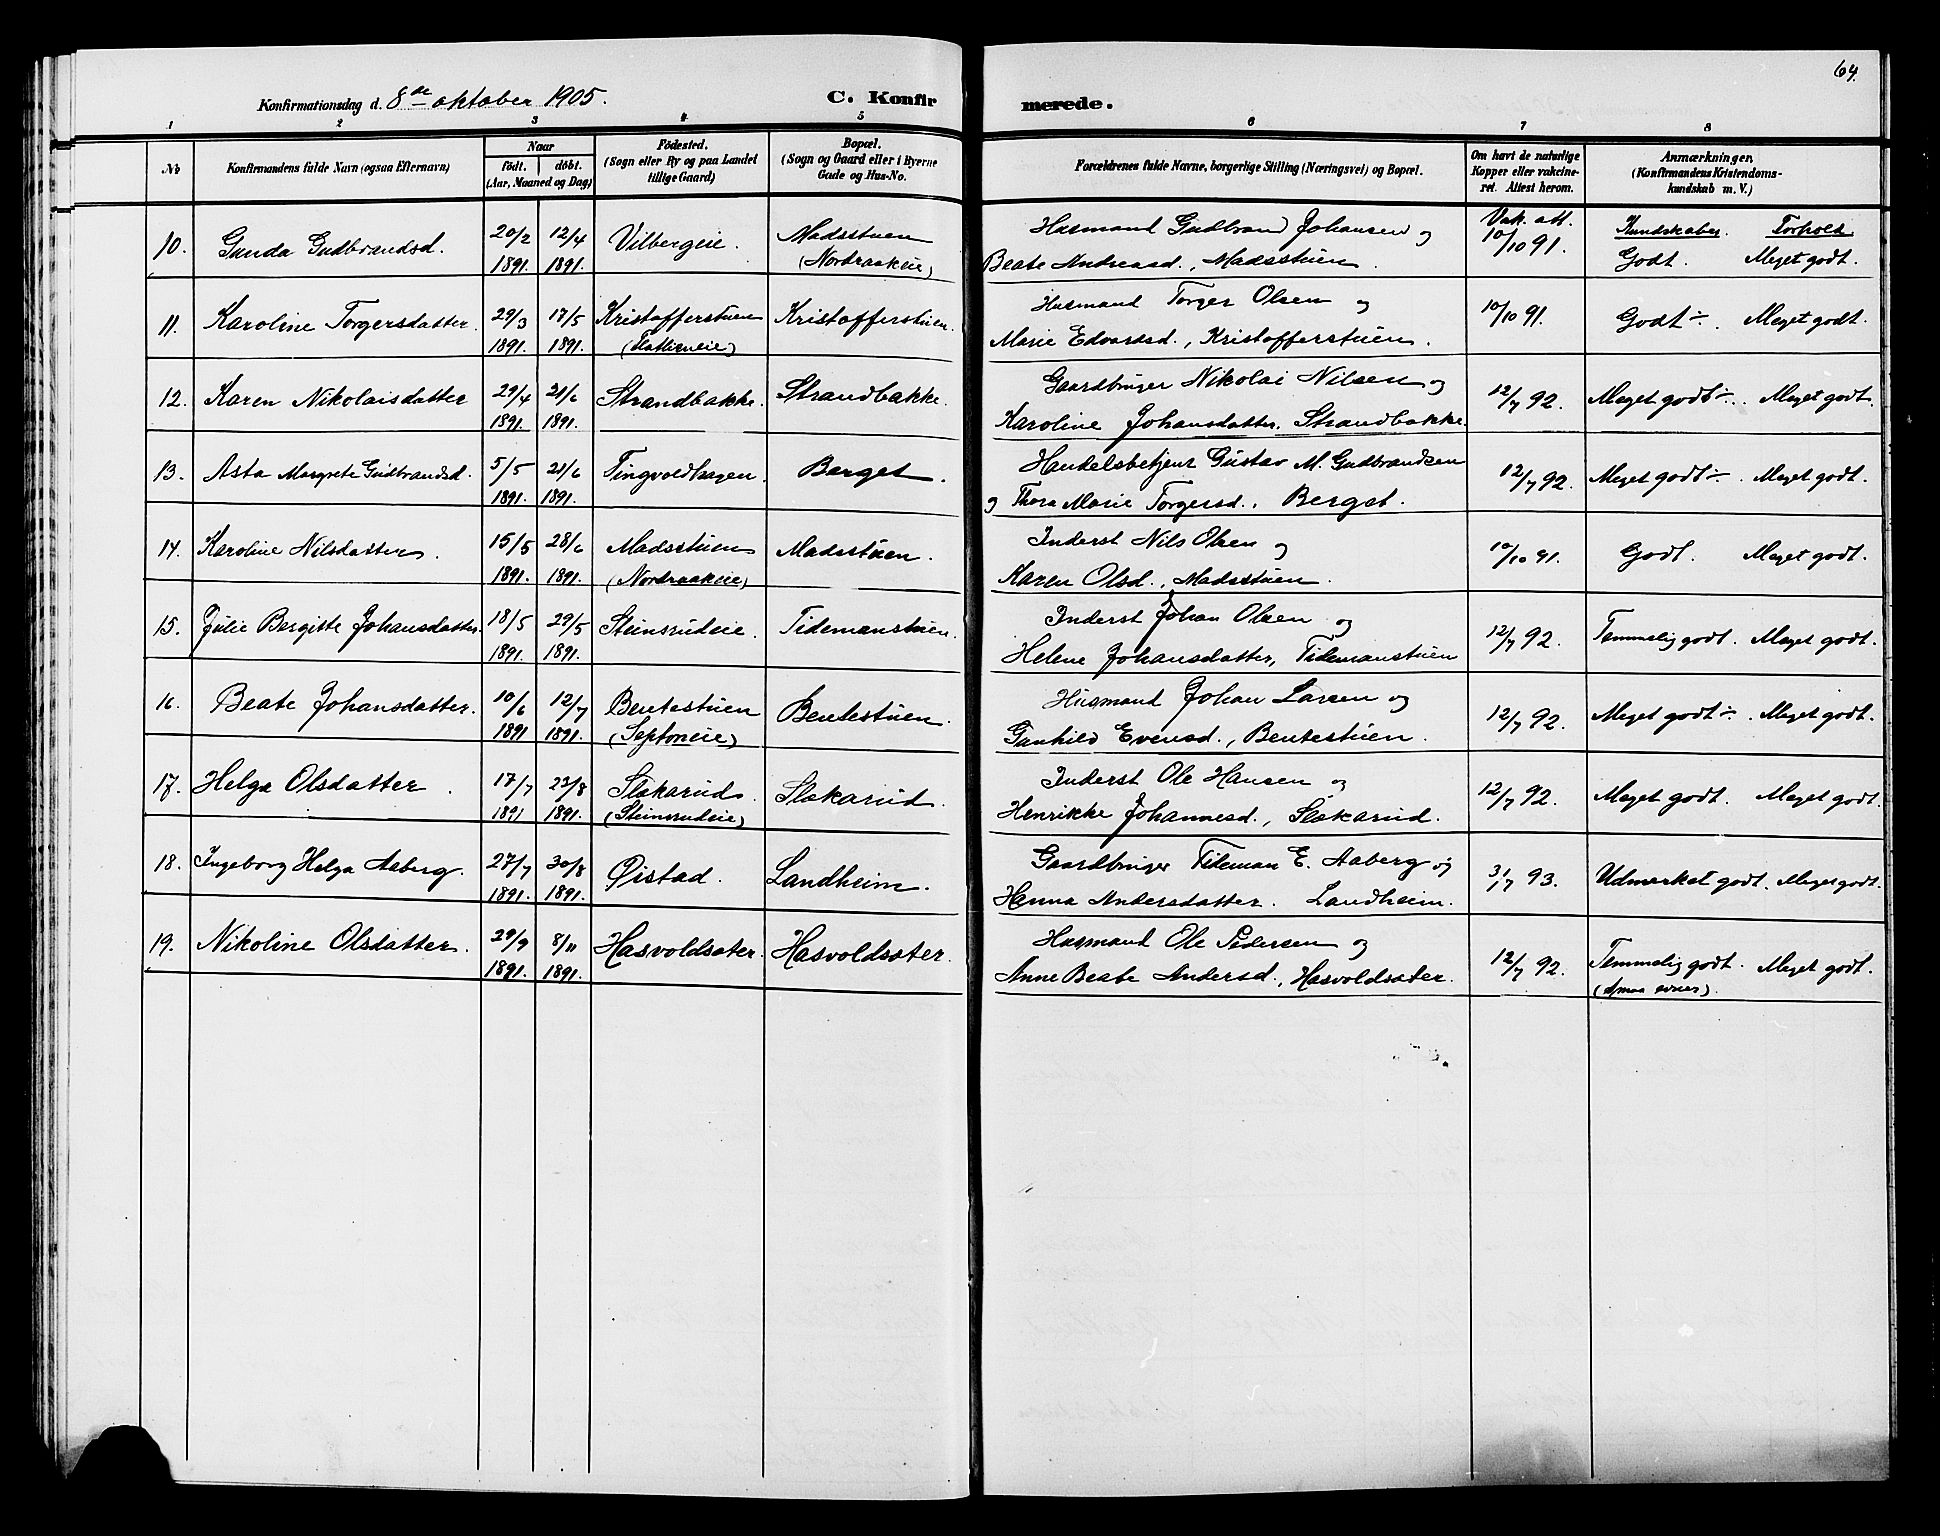 64.
Konfirmationsdag d. 8de oktober 1905. C. Konfirmerede.
1 2 3 4 5 6 7 8
No Konfirmandens fulde Navn (ogsaa Efternavn) Naar født. døbt. (Aar, Maaned og Dag) Fødested. (Sogn eller By og paa Landet tillige Gaard) Bopæl. (Sogn og Gaard eller i Byerne Gade og Hus-No. Forældrenes fulde Navne, borgerlige Stilling (Næringsvei) og Bopæl. Om havt de naturlige Kopper eller vakcineret. Attest herom. Anmærkninger. (Konfirmandens Kristendomskundskab m. V.)
10. Gunda Gudbrandsd. 20/2 12/4 Vilbergeie. Madsstuen Husmand Gudbrand Johansen og Vak. att. 10/10 91. Kundskaber. Forhold.
1891. 1891. (Nordraakeie) Beate Andreasd., Madsstuen. Godt. Meget godt.
11. Karoline Torgersdatter. 29/3 17/5 Kristofferstuen Kristofferstuen. Husmand Torger Olsen og 10/10 91. Godt ÷. Meget godt.
1891. 1891. Marie Edvardsd., Kristofferstuen.
12. Karen Nikolaisdatter 29/4 21/6 Strandbakke. Strandbakke. Gaardbruger Nikolai Nilsen og 12/7 92. Meget godt ÷. Meget godt.
1891. 1891. Karoline Johansdatter, Strandbakke.
13. Asta Margrete Gudbrandsd. 5/5 21/6 Tingvoldhagen. Berget. Handelsbetjent Gustav M. Gudbrandsen 12/7 92. Meget godt ÷. Meget godt.
1891. 1891. og Thora Marie Torgersd., Berget.
14. Karoline Nilsdatter. 15/5 28/6 Madsstuen Madsstuen. Inderst Nils Olsen og 10/10 91. Godt. Meget godt.
1891. 1891. (Nordraakeie) Karen Olsd., Madsstuen.
15. Julie Bergitte Johansdatter. 18/5 29/5 Steinsrudeie. Tidemanstuen. Inderst Johan Olsen og 12/7 92. Temmelig godt. Meget godt.
1891. 1891. Helene Johansdatter, Tidemanstuen
16. Beate Johansdatter. 10/6 12/7 Bentestuen Bentestuen. Husmand Johan Larsen og 12/7 92. Meget godt ÷. Meget godt.
1891 1891. (Septoneie) Gunhild Evensd., Bentestuen.
17. Helga Olsdatter. 17/7 23/8 Slokarud. Slokarud. Inderst Ole Hansen og 12/7 92. Meget godt. Meget godt.
1891 1891. (Steinsrudeie) Henrikke Johannesd., Slokarud.
18. Ingeborg Helga Aaberg. 27/7 30/8 Øistad. Landheim. Gaardbruger Tideman E. Aaberg og 31/7 93. Udmerket godt. Meget godt.
1891. 1891. Hanna Andersdatter. Landheim.
19. Nikoline Olsdatter. 29/9 8/11 Hasvoldsæter. Hasvoldsæter. Husmand Ole Pedersen og 12/7 92. Temmelig godt. Meget godt.
1891. 1891. Anne Beate Andersd., Hasvoldsæter. (Smaa evner).